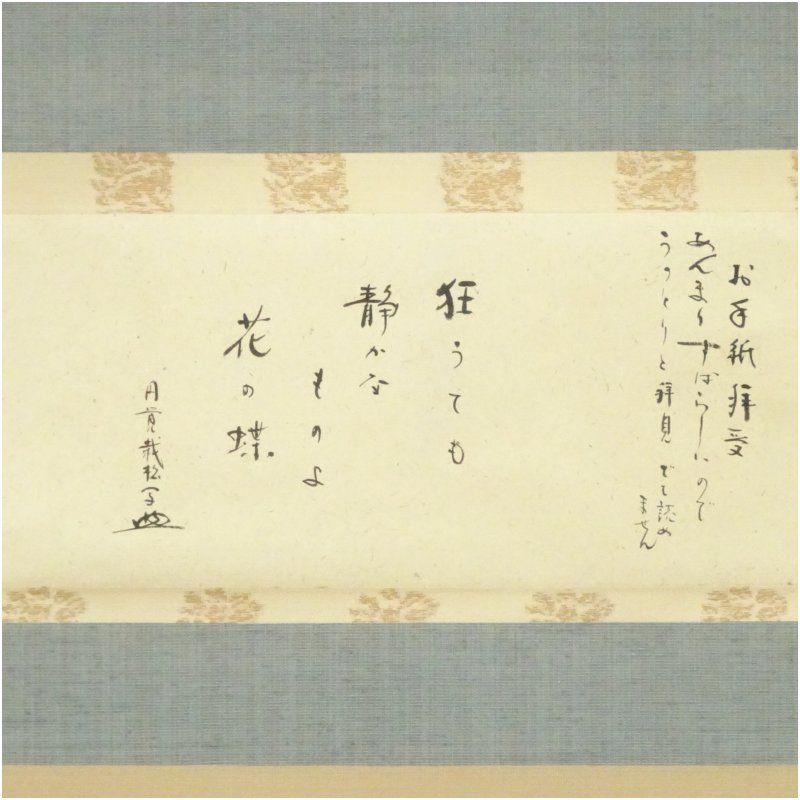 お手紙拝受
あんまりすばらしいので
うっとりと拝見 とても認め
ません
狂うても
静かな
ものよ
花の蝶